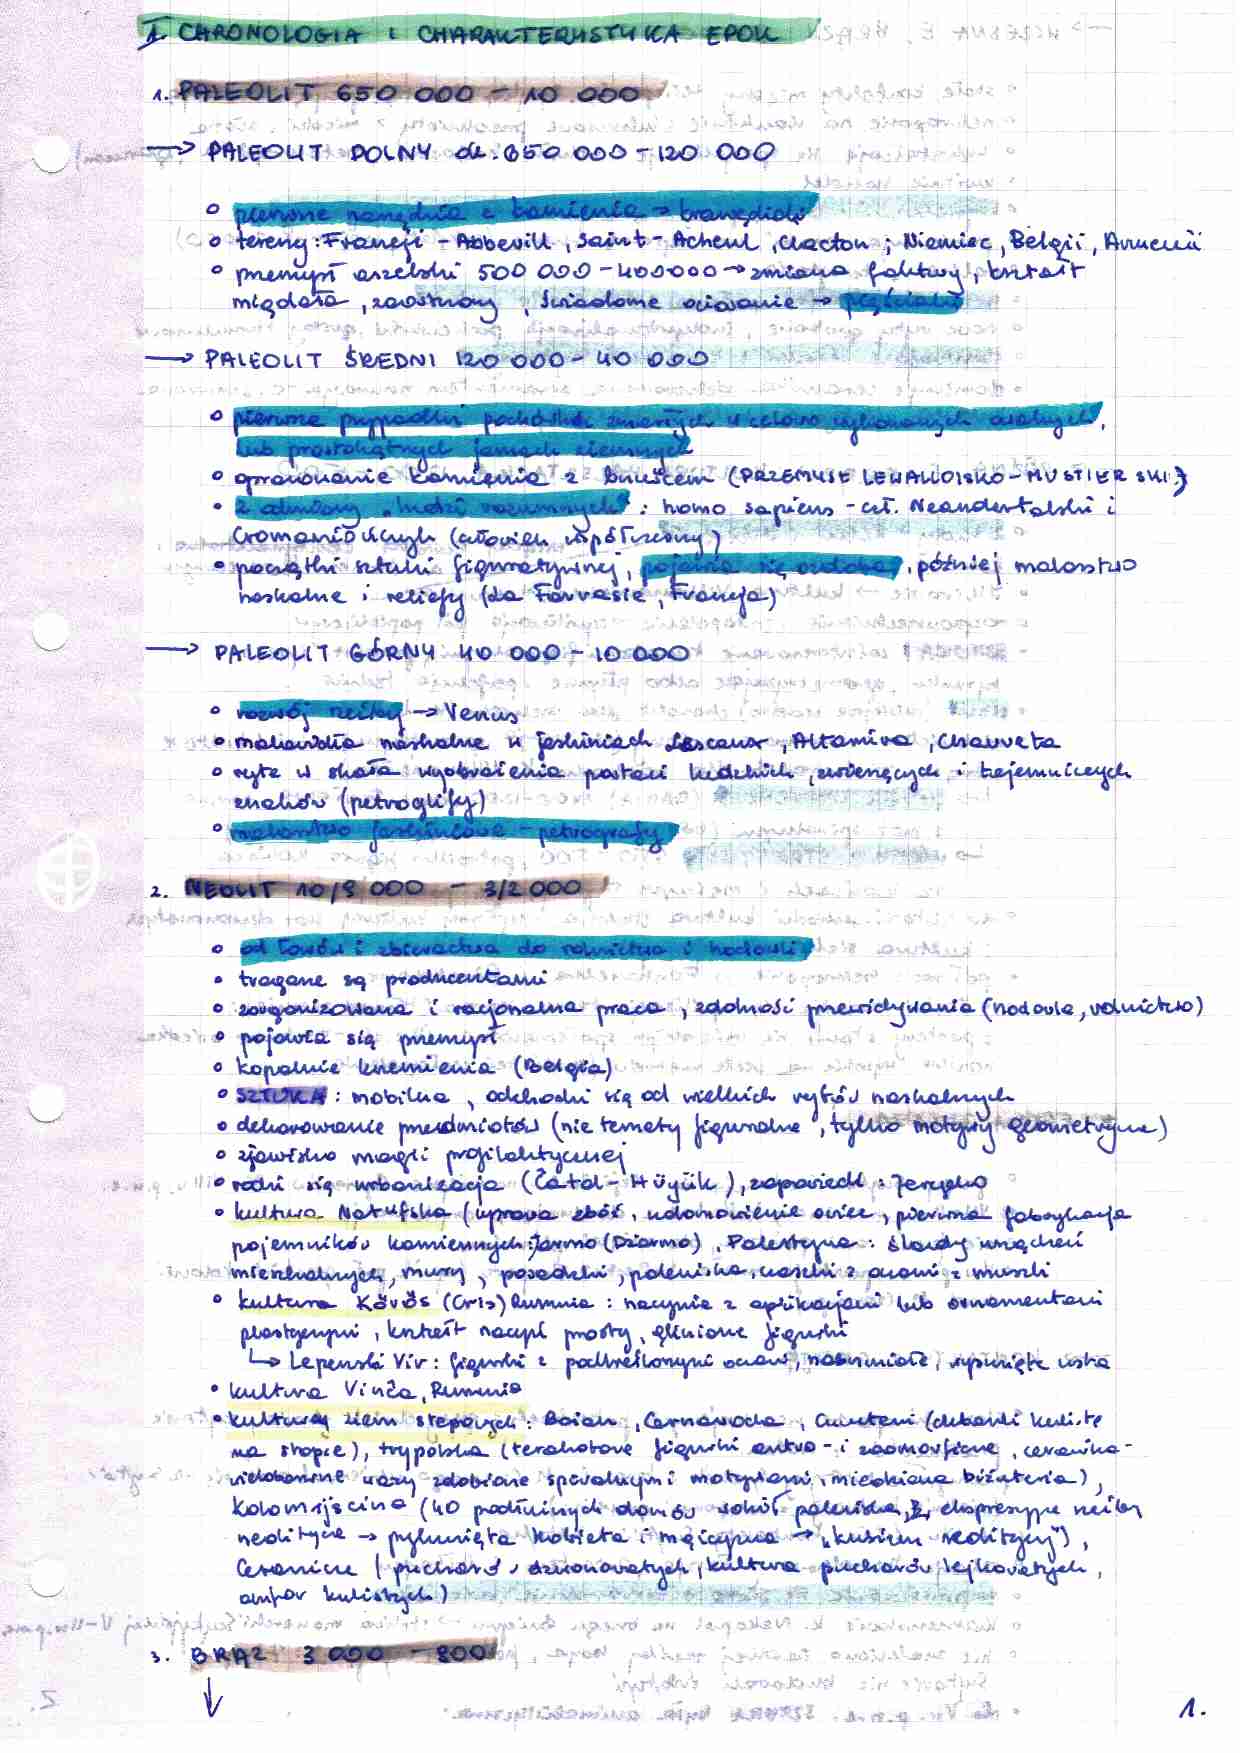 I. CHRONOLOGIA I CHARAKTERYSTYKA EPOK
1. PALEOLIT 650 000 - 10 000
→ PALEOLIT DOLNY ok. 650 000 - 120 000
o pierwsze narzędzia z kamienia →
o tereny: Francji - Abbevill, Saint-Acheul, Clacton; Niemiec, Belgii, Armenii
o przemysł aszelski 500 000 - 400 000 → zmiana faktury, kształt
migdała, zaostrzony, świadome ociosanie → pięściaki
→ PALEOLIT ŚREDNI 120 000 - 40 000
o pierwsze przypadki pochówku zmarłych w celowo wykonanych owalnych
lub prostokątnych jamach ziemnych
o opracowanie kamienia z kunsztem (PRZEMYSŁ LEWALUOISKO - MUSTIERSKI)
o 2 odmiany "ludzi rozumnych": homo sapiens - czł. Neandertalski i
Cromanióńczyk (człowiek współczesny)
o początki sztuki figuratywnej, pojawia się ozdoba, później malarstwo
naskalne i reliefy (La Farrasie, Francja)
→ PALEOLIT GÓRNY 40 000 - 10 000
o rozwój rzeźby → Venus
o malowidła naskalne w jaskiniach Lascaux, Altamira, Chauveta
o ryte w skale wyobrażenia postaci ludzkich, zwierzęcych i tajemniczych
znaków (petroglify)
o malarstwo jaskiniowe - petrografy
2. NEOLIT 10/9 000 - 3/2 000
o od łowów i zbieractwa do rolnictwa i hodowli
• są producentami
o zorganizowana i racjonalna praca, zdolność przewidywania (hodowla, rolnictwo)
o pojawia się przemysł
• kopalnie krzemienia (Belgia)
o SZTUKA: mobilna, odchodzi się od wielkich rytów naskalnych
o dekorowanie przedmiotów (nie tematy figuralne, tylko motywy geometryczne)
o zjawisko magii profilaktycznej
• rodzi się urbanizacja (Čatal-Hüyük), zapowiedź: Jerycho
• kultura Natufska (uprawa zbóż, udomowienie owiec, pierwsza fabrykacja
pojemników kamiennych: Jarmo (Dżarmo), Palestyna: ślady urządzeń
mieszkalnych, mury, posadzki, paleniska, czaszki z oczami z muszli
• kultura Körös (Cris) Rumunia: naczynia z aplikacjami lub ornamentami
plastycznymi, kształt naczyń prosty, gliniane figurki
↳ Lepenski Vir: figurki z podkreślonymi oczami, nabrzmiałe, wysunięte usta
• kultura Vinča, Rumunia
• kultury ziem stepowych: Boian, Cernavoda, Cucuteni (dzbanki kuliste
na stopce), trypolska (terakotowe figurki antro- i zoomorficzne, ceramika -
wielobarwne wazy zdobione spiralnymi motywami, miedziana biżuteria),
Kolomijscina (40 podłużnych domów wokół paleniska, ekspresyjne rzeźby
neolityczne → przykucnięta kobieta i mężczyzna → "kusiciel neolityczny"),
(pucharów dzwonowatych, kultura pucharów lejkowatych,
amfor kulistych)
3. BRĄZ 3 000 - 800
↓
1.